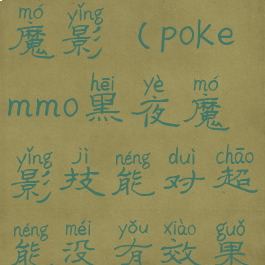 mó yǐng
魔影（poke
hēi yè mó
mmo黑夜魔
yǐng jì néng duì chāo
影技能对超
néng méi yǒu xiào guǒ
能没有效果